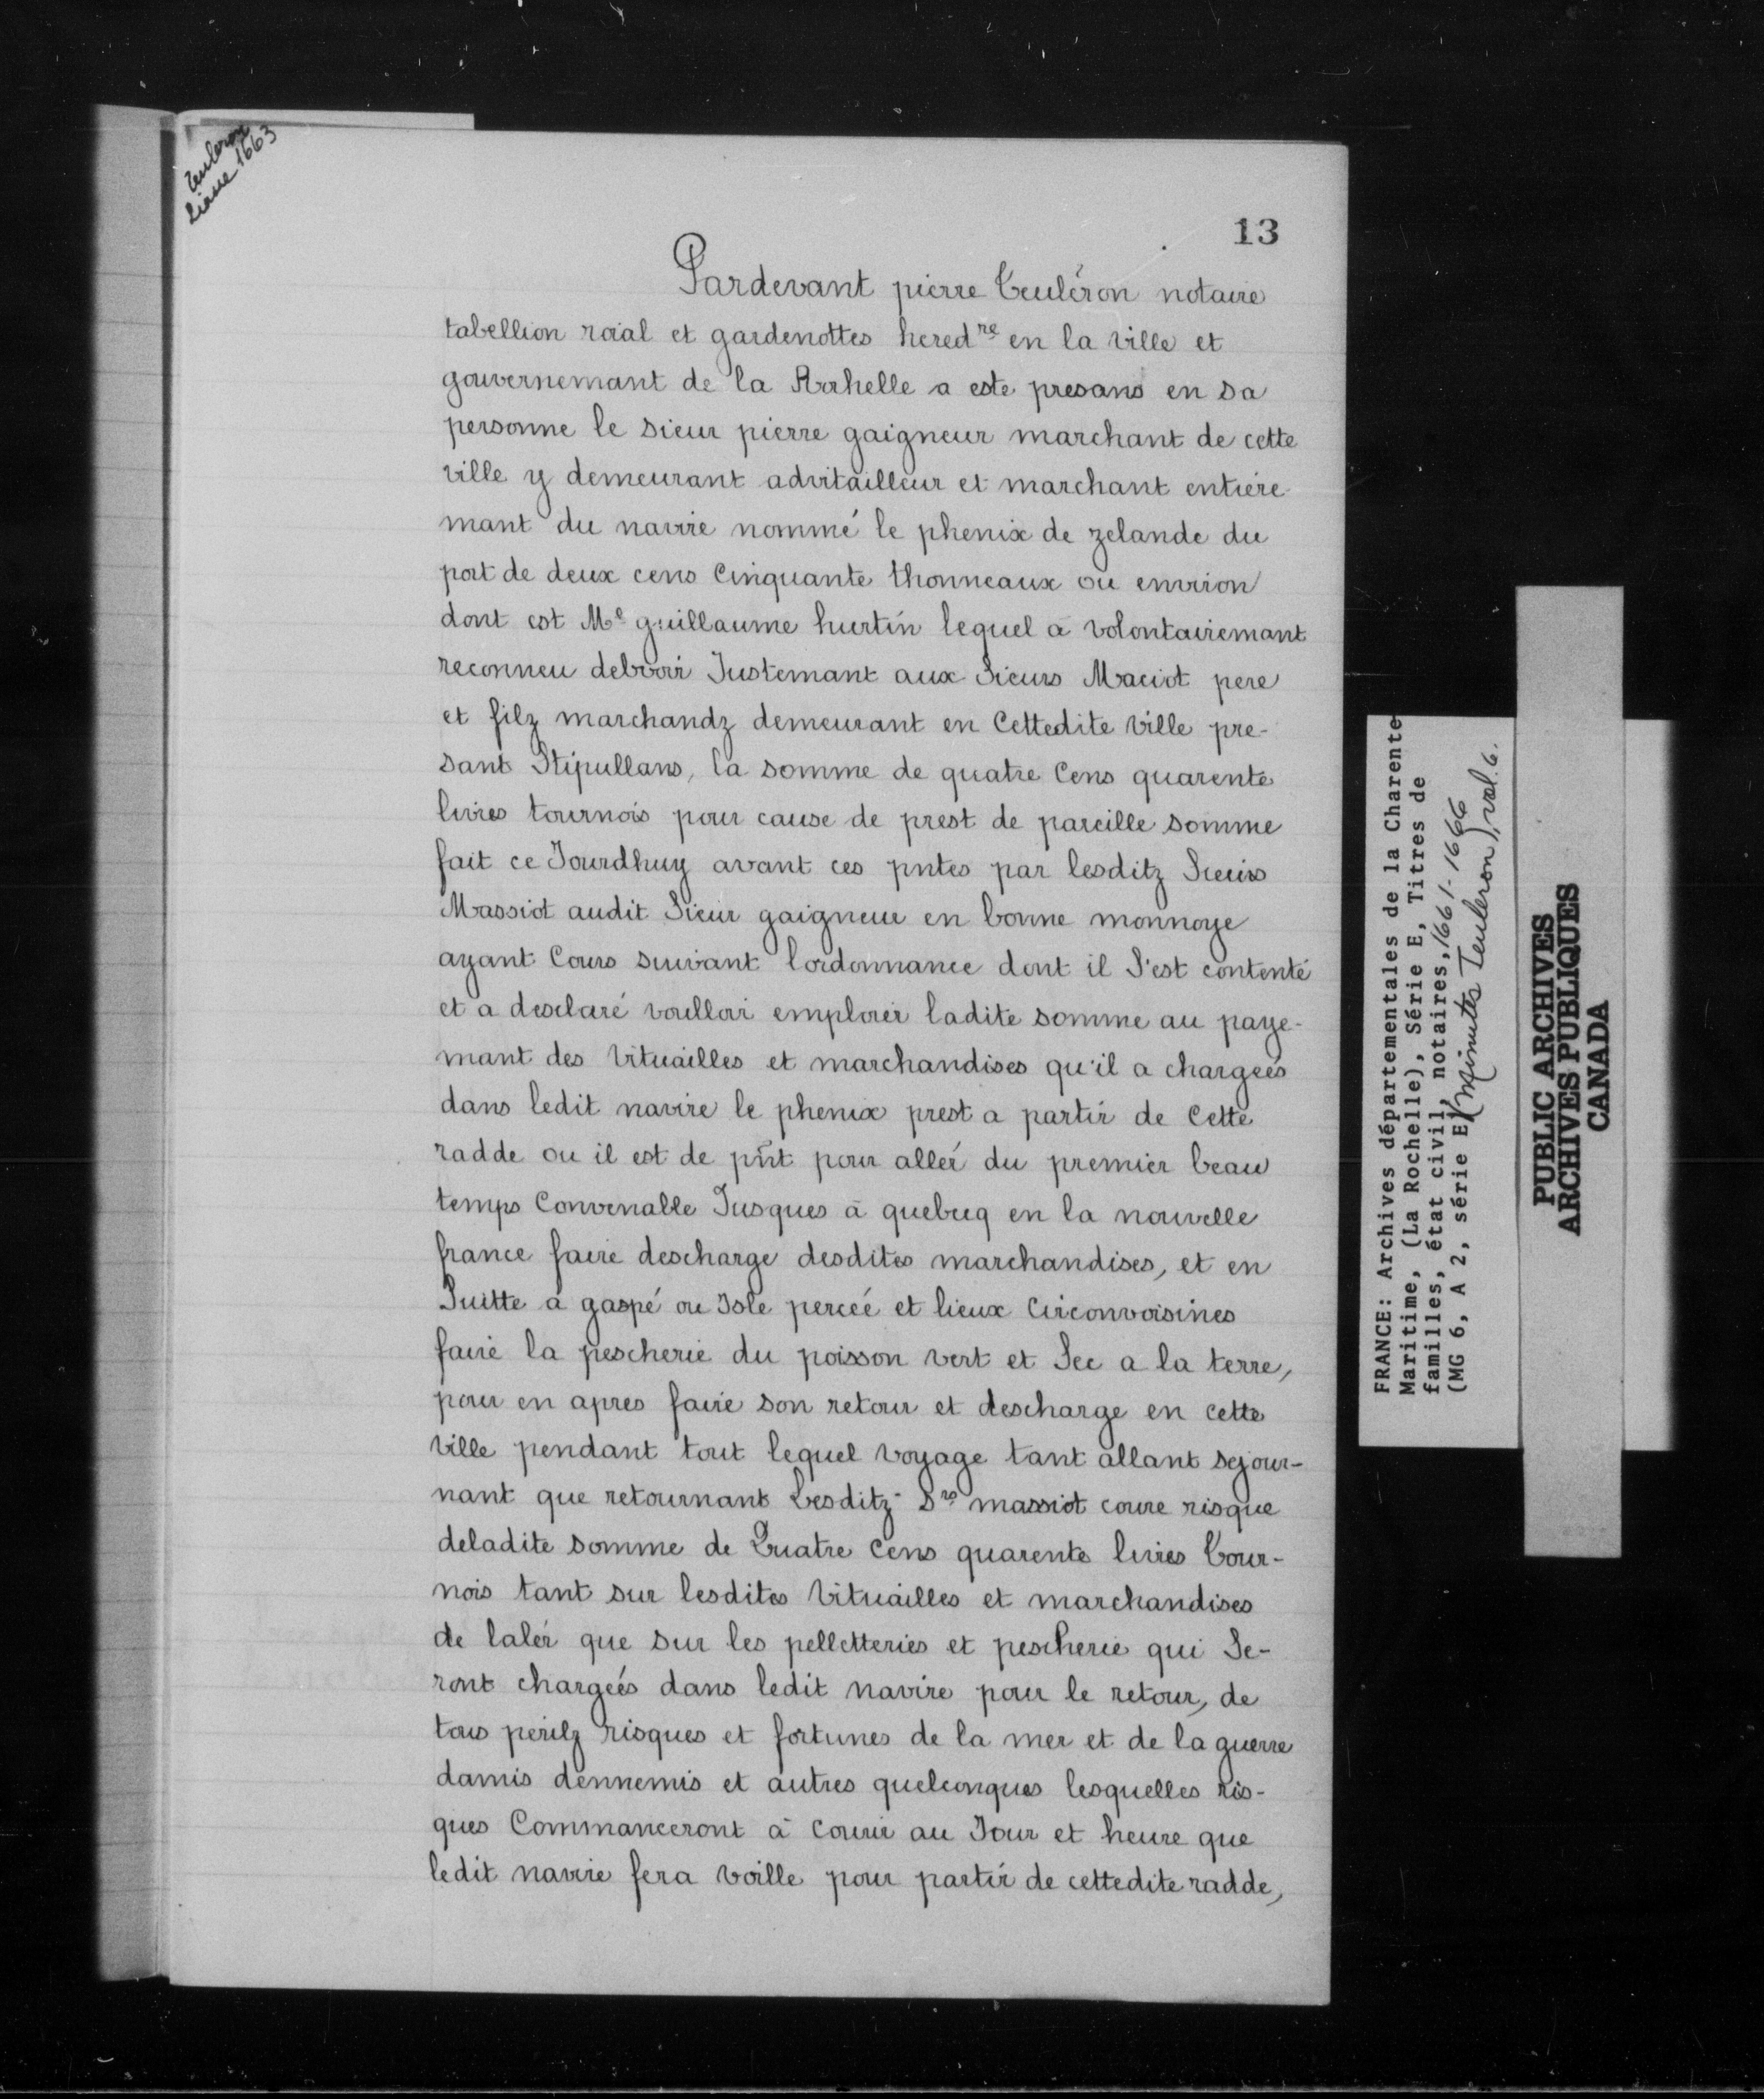 Teuleron
Liasse 1663
13
Pardevant pierre Teuléron notaire
tabellion roial et gardenottes hered.re en la ville et
gouvernemant de la Rochelle a este presans en sa
personne le sieur pierre gaigneur marchant de cette
ville y demeurant advitailleur et marchant entiere-
mant du navire nommé le phenix de zelande du
port de deux cens Cinquante thonneaux ou environ
dont est Me guillaume hurtin lequel a volontairemant
reconneu debvoir Justemant aux Sieurs Maciot pere
et filz marchandz demeurant en Cettedite Ville pre-
sant Stipullans, la somme de quatre Cens quarente
livres tournois pour cause de prest de pareille somme
fait ce Jourdhuy avant ces pntes par lesditz Sieurs
Massiot audit Sieur gaigneur en bonne monnoye
ayant Cours suivant l'ordonnance dont il S'est contenté
et a desclaré voulloir emploier ladite somme au paye-
mant des Vituailles et marchandises qu'il a chargées
dans ledit navire le phenix prest a partir de Cette
radde ou il est de pñt pour aller du premier beau
temps Convenalle Jusques à quebecq en la nouvelle
france faire descharge desdites marchandises, et en
Suitte à gaspé ou Isle percée et lieux Circonvoisines
faire la pescherie du poisson vert et Sec a la terre,
pour en apres faire son retour et descharge en cette
Ville pendant tout lequel voyage tant allant sejour-
nant que retournant Lesditz Srs massiot coure risque
deladite somme de Quatre Cens quarente livres Tour-
nois tant sur lesdites Vituailles et marchandises
de laler que sur les pelletteries et pescherie qui Se-
ront chargées dans ledit navire pour le retour, de
tous perilz risques et fortunes de la mer et de la guerre
damis dennemis et autres quelconques lesquelles ris-
ques Commanceront à Courir au Jour et heure que
ledit navire fera voille pour partir de cettedite radde,
FRANCE: Archives départementales de la Charente
Maritime, (La Rochelle), Série E, Titres de
familles, état civil, notaires, 1661-1666
(MG 6, A 2, série E) (Minutes Teuleron), vol. 6.
PUBLIC ARCHIVES
ARCHIVES PUBLIQUES
CANADA